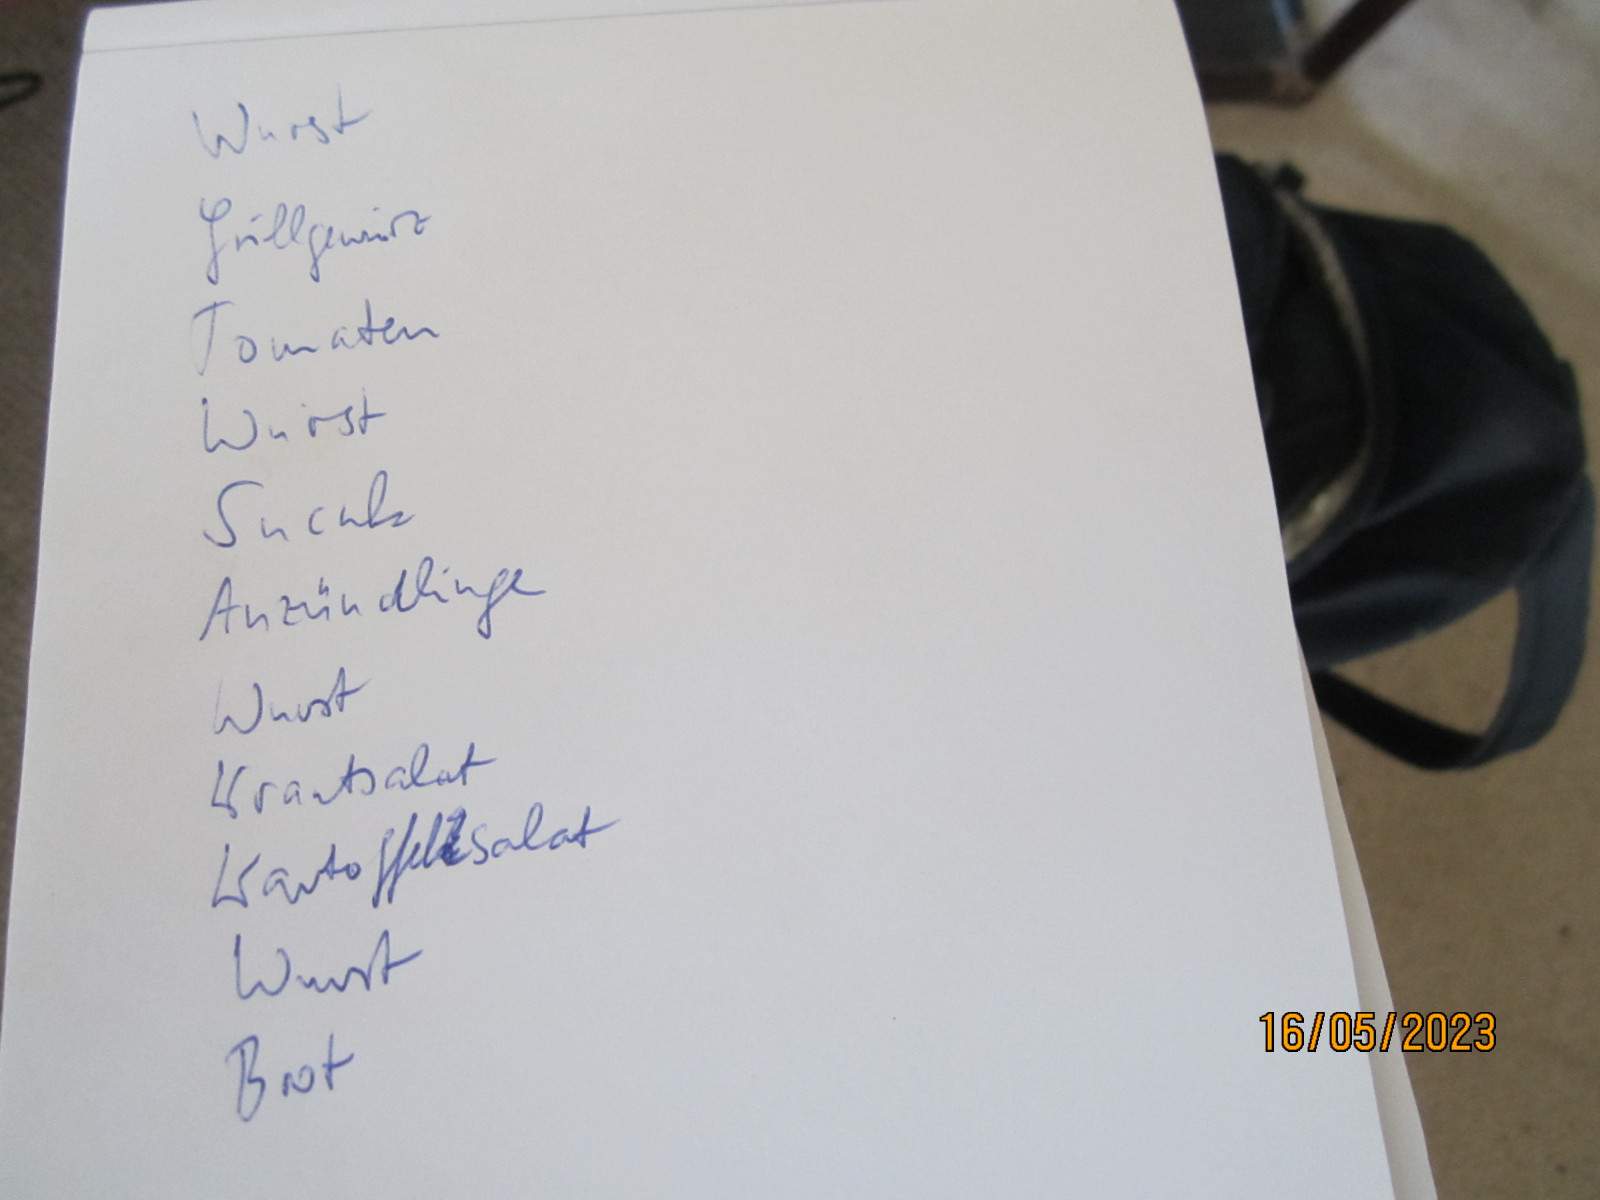 Wurst
Grillgewürz
Tomaten
Wurst
Sucuk
Anzündlinge
Wurst
Krautsalat
Kartoffelsalat
Wurst
Brot
16/05/2023